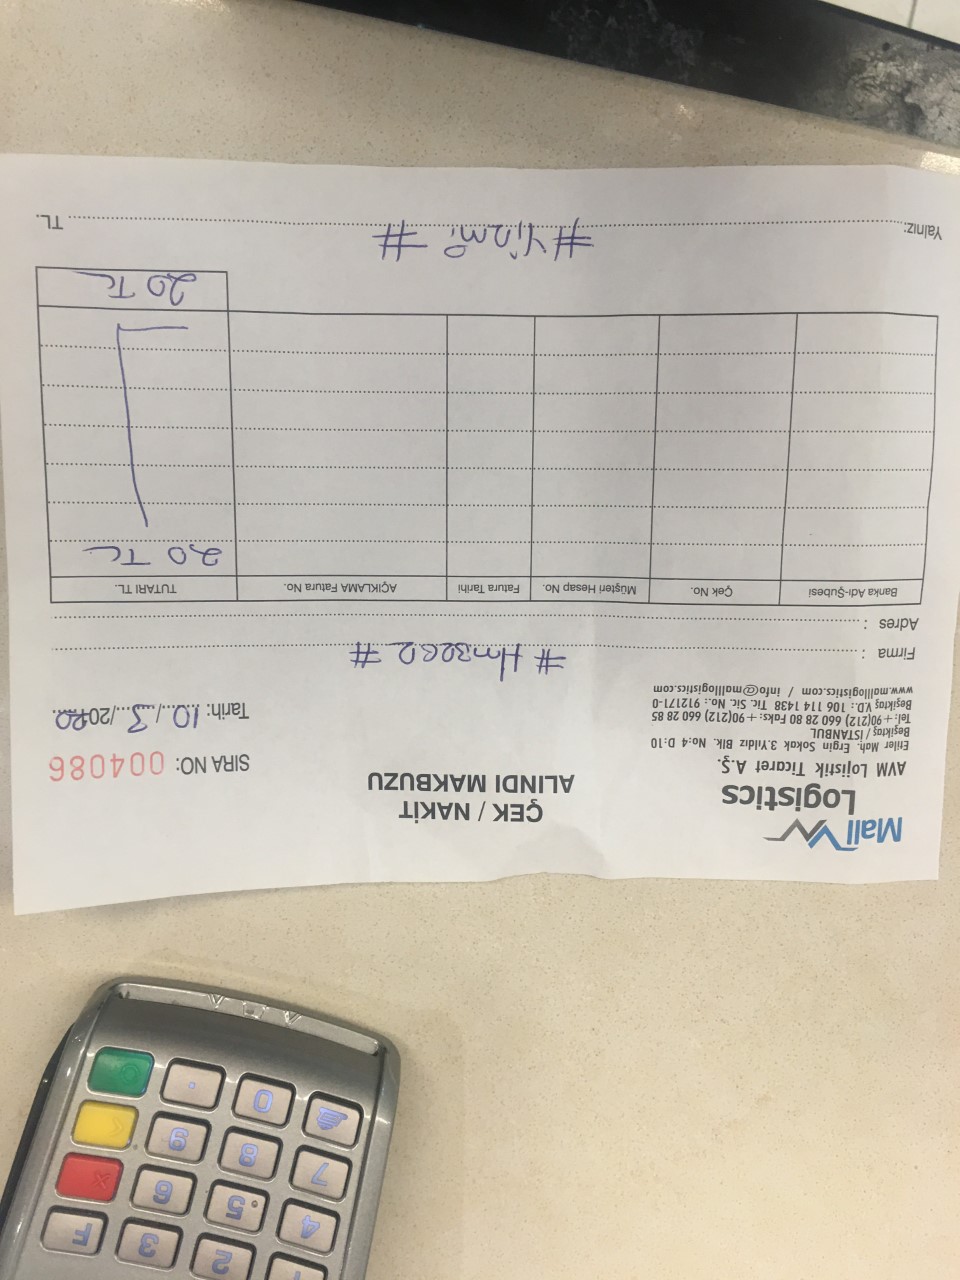 1 2 3 F
4 5 6
7 8 9
0 .
Mall
Logistics
AVM Lojistik Ticaret A.Ş.
Etiler Mah. Ergin Sokak 3.Yıldız Blk. No:4 D:10
Beşiktaş / İSTANBUL
Tel:+90(212) 660 28 80 Faks:+90(212) 660 28 85
Beşiktaş V.D.: 106 114 1438 Tic. Sic. No.: 912171-0
www.malllogistics.com / info@malllogistics.com
ÇEK / NAKİT
ALINDI MAKBUZU
SIRA NO: 004086
Tarih: 10/3/2020
Firma : # #
Adres :
Banka Adı-Şubesi Çek No. Müşteri Hesap No. Fatura Tarihi AÇIKLAMA Fatura No. TUTARI TL.
20 TL
20 TL
Yalnız: # Yirmi # TL.